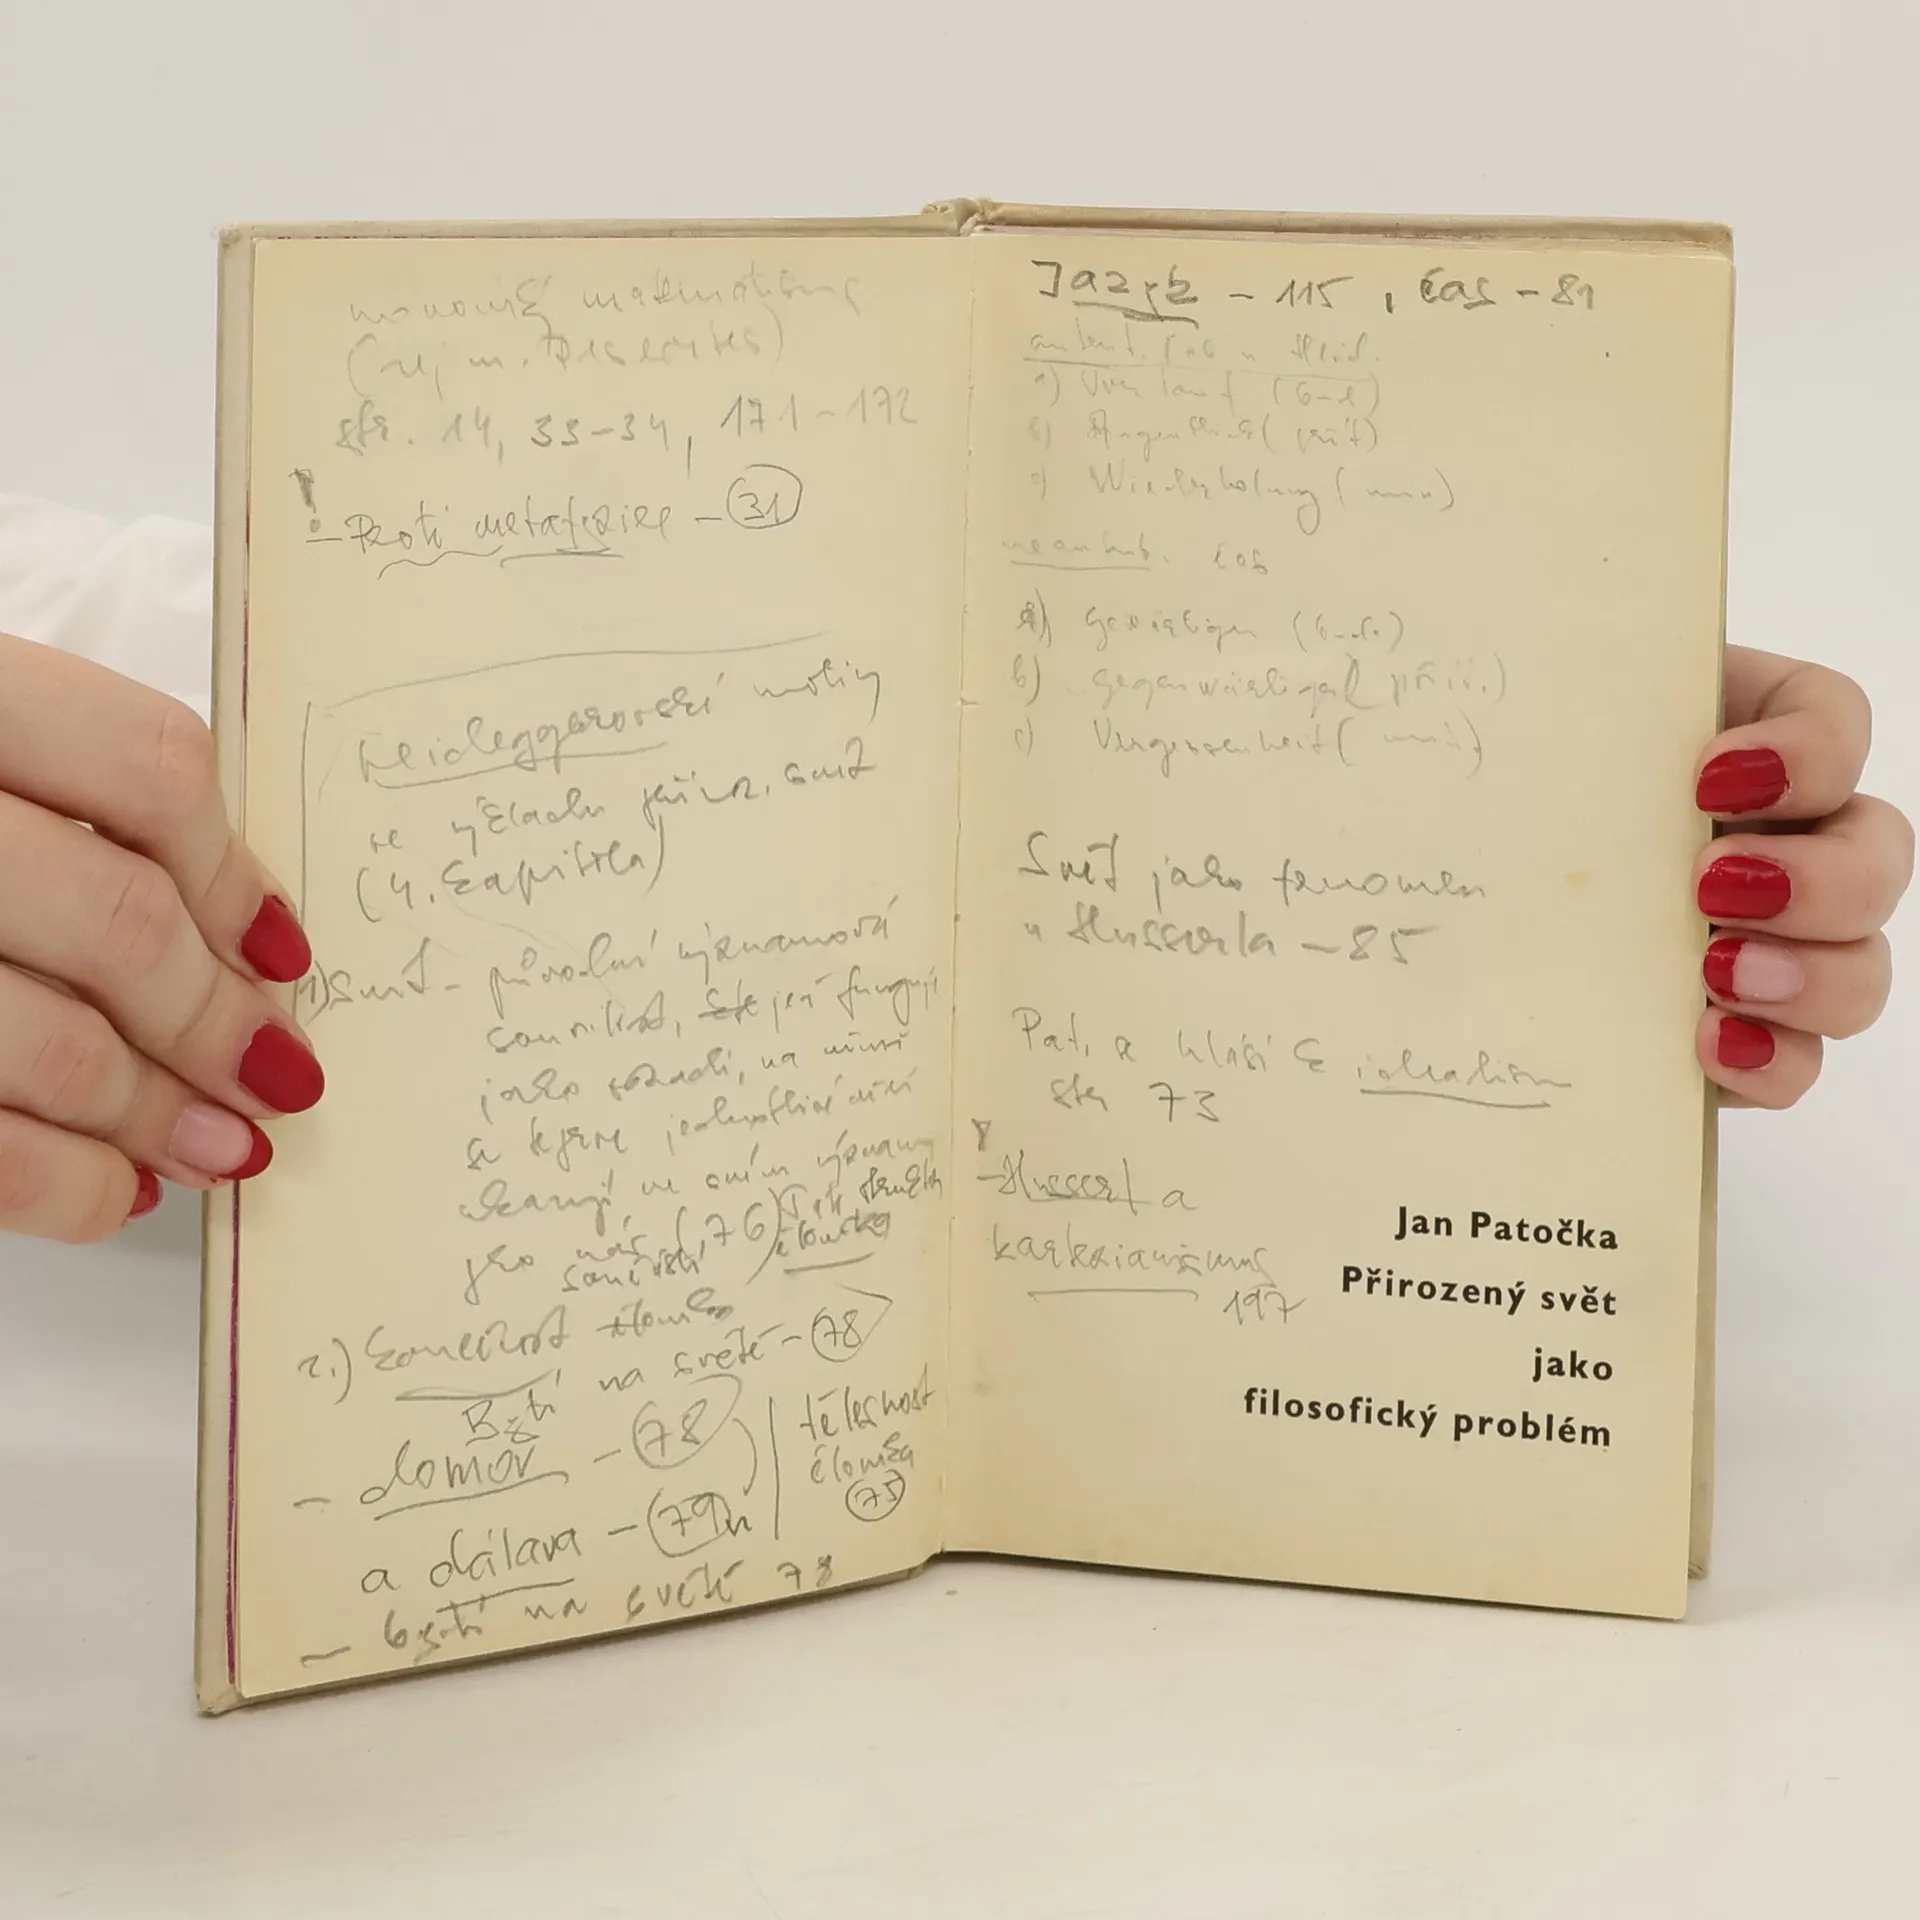 str. 14, 33-34, 171-172
! - Proti metafyzice - 31
Heideggerovské motivy
ve výkladu přiroz. svět
(4. kapitola)
1) Svět - původní významová
souvislost, jež funguje
jako pozadí, na němž
se teprve jednotlivé věci
ukazují, ve svém významu
pro nás (76)
souvislosti
člověka
2.) konečnost
Bytí na světě - 78
- domov - 78
a dálava - 79n
tělesnost
člověka
75
- bytí na světě 78
Jazyk - 115, čas - 81
autent. čas u Heid.
a) Vorlauf (bud)
b) Augenblick (přít)
c) Wiederholung (min)
neautent. čas
a) (bud.)
b) (přít.)
c) Vergessenheit (min.)
Svět jako fenomen
u Husserla - 85
Pat. se hlásí k idealism
str 73
! - Husserl a
kartezianismus
197
Jan Patočka
Přirozený svět
jako
filosofický problém